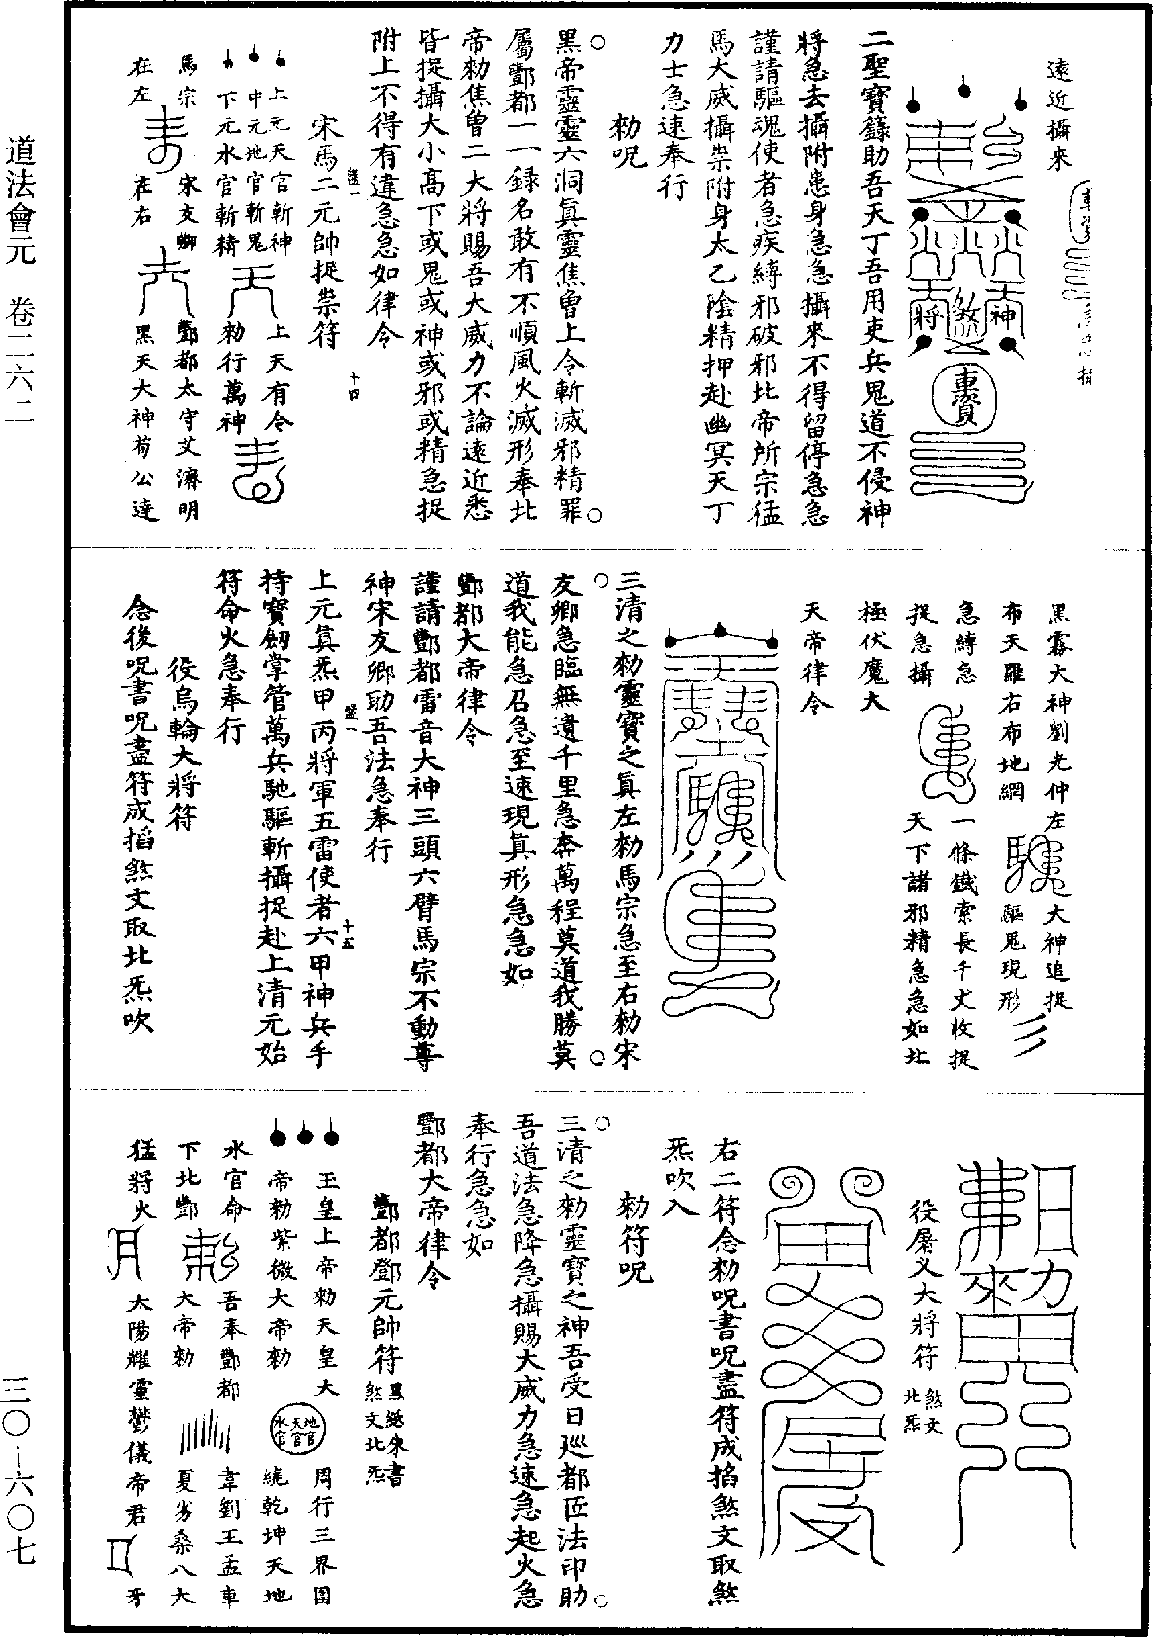 道法會元　卷二六二
三〇—六〇七
遠近攝來
神
將
煞
二聖寶籙助吾天丁吾用吏兵鬼道不侵神
將急去攝附患身急急攝來不得留停急急
謹請驅魂使者急疾縛邪破邪比帝所宗猛
馬大威攝祟附身太乙陰精押赴幽冥天丁
力士急速奉行
勑呪
黑帝靈靈六洞眞靈焦曾上令斬滅邪精罪
屬酆都一一錄名敢有不順風火滅形奉北
帝勑焦曾二大將賜吾大威力不論遠近悉
皆捉攝大小高下或鬼或神或邪或精急捉
附上不得有違急急如律令
宋馬二元帥捉祟符
十四
上元天官斬神
中元地官斬鬼
下元水官斬精
上天有令
勑行萬神
馬宗
在左
宋友卿
在右
酆都太守艾濂明
黑天大神荀公達
黑雾大神劉光仲左
大神追捉
布天羅右布地網
驅鬼現形
急縛急
一條鐵索長千丈收捉
捉急攝
天下諸邪精急急如北
極伏魔大
天帝律令
三清之勑靈寶之眞左勑馬宗急至右勑宋
友卿急臨無遺千里急奔萬程莫道我勝莫
道我能急召急至速現眞形急急如
酆都大帝律令
謹請酆都雷音大神三頭六臂馬宗不動尊
神宋友卿助吾法急奉行
十五
上元眞炁甲丙將軍五雷使者六甲神兵手
持寶劒掌管萬兵馳驅斬攝捉赴上清元始
符命火急奉行
役烏輪大將符
念後呪書呪盡符成掐煞文取北炁吹
役屠义大將符
煞文
北炁
右二符念勑呪書呪盡符成掐煞文取煞
炁吹入
勑符呪
三清之勑靈寶之神吾受日巡都匠法印助
吾道法急降急攝賜大威力急速急起火急
奉行急急如
酆都大帝律令
酆都鄧元帥符
黑紙朱書
煞文北炁
玉皇上帝勑天皇大
帝勑紫微大帝勑
地官
天官
水官
周行三界圍
繞乾坤天地
水官命
吾奉酆都
韋劉王孟車
下北酆
大帝勑
夏劣桑八大
猛將火
太陽耀靈鬱儀帝君
牙